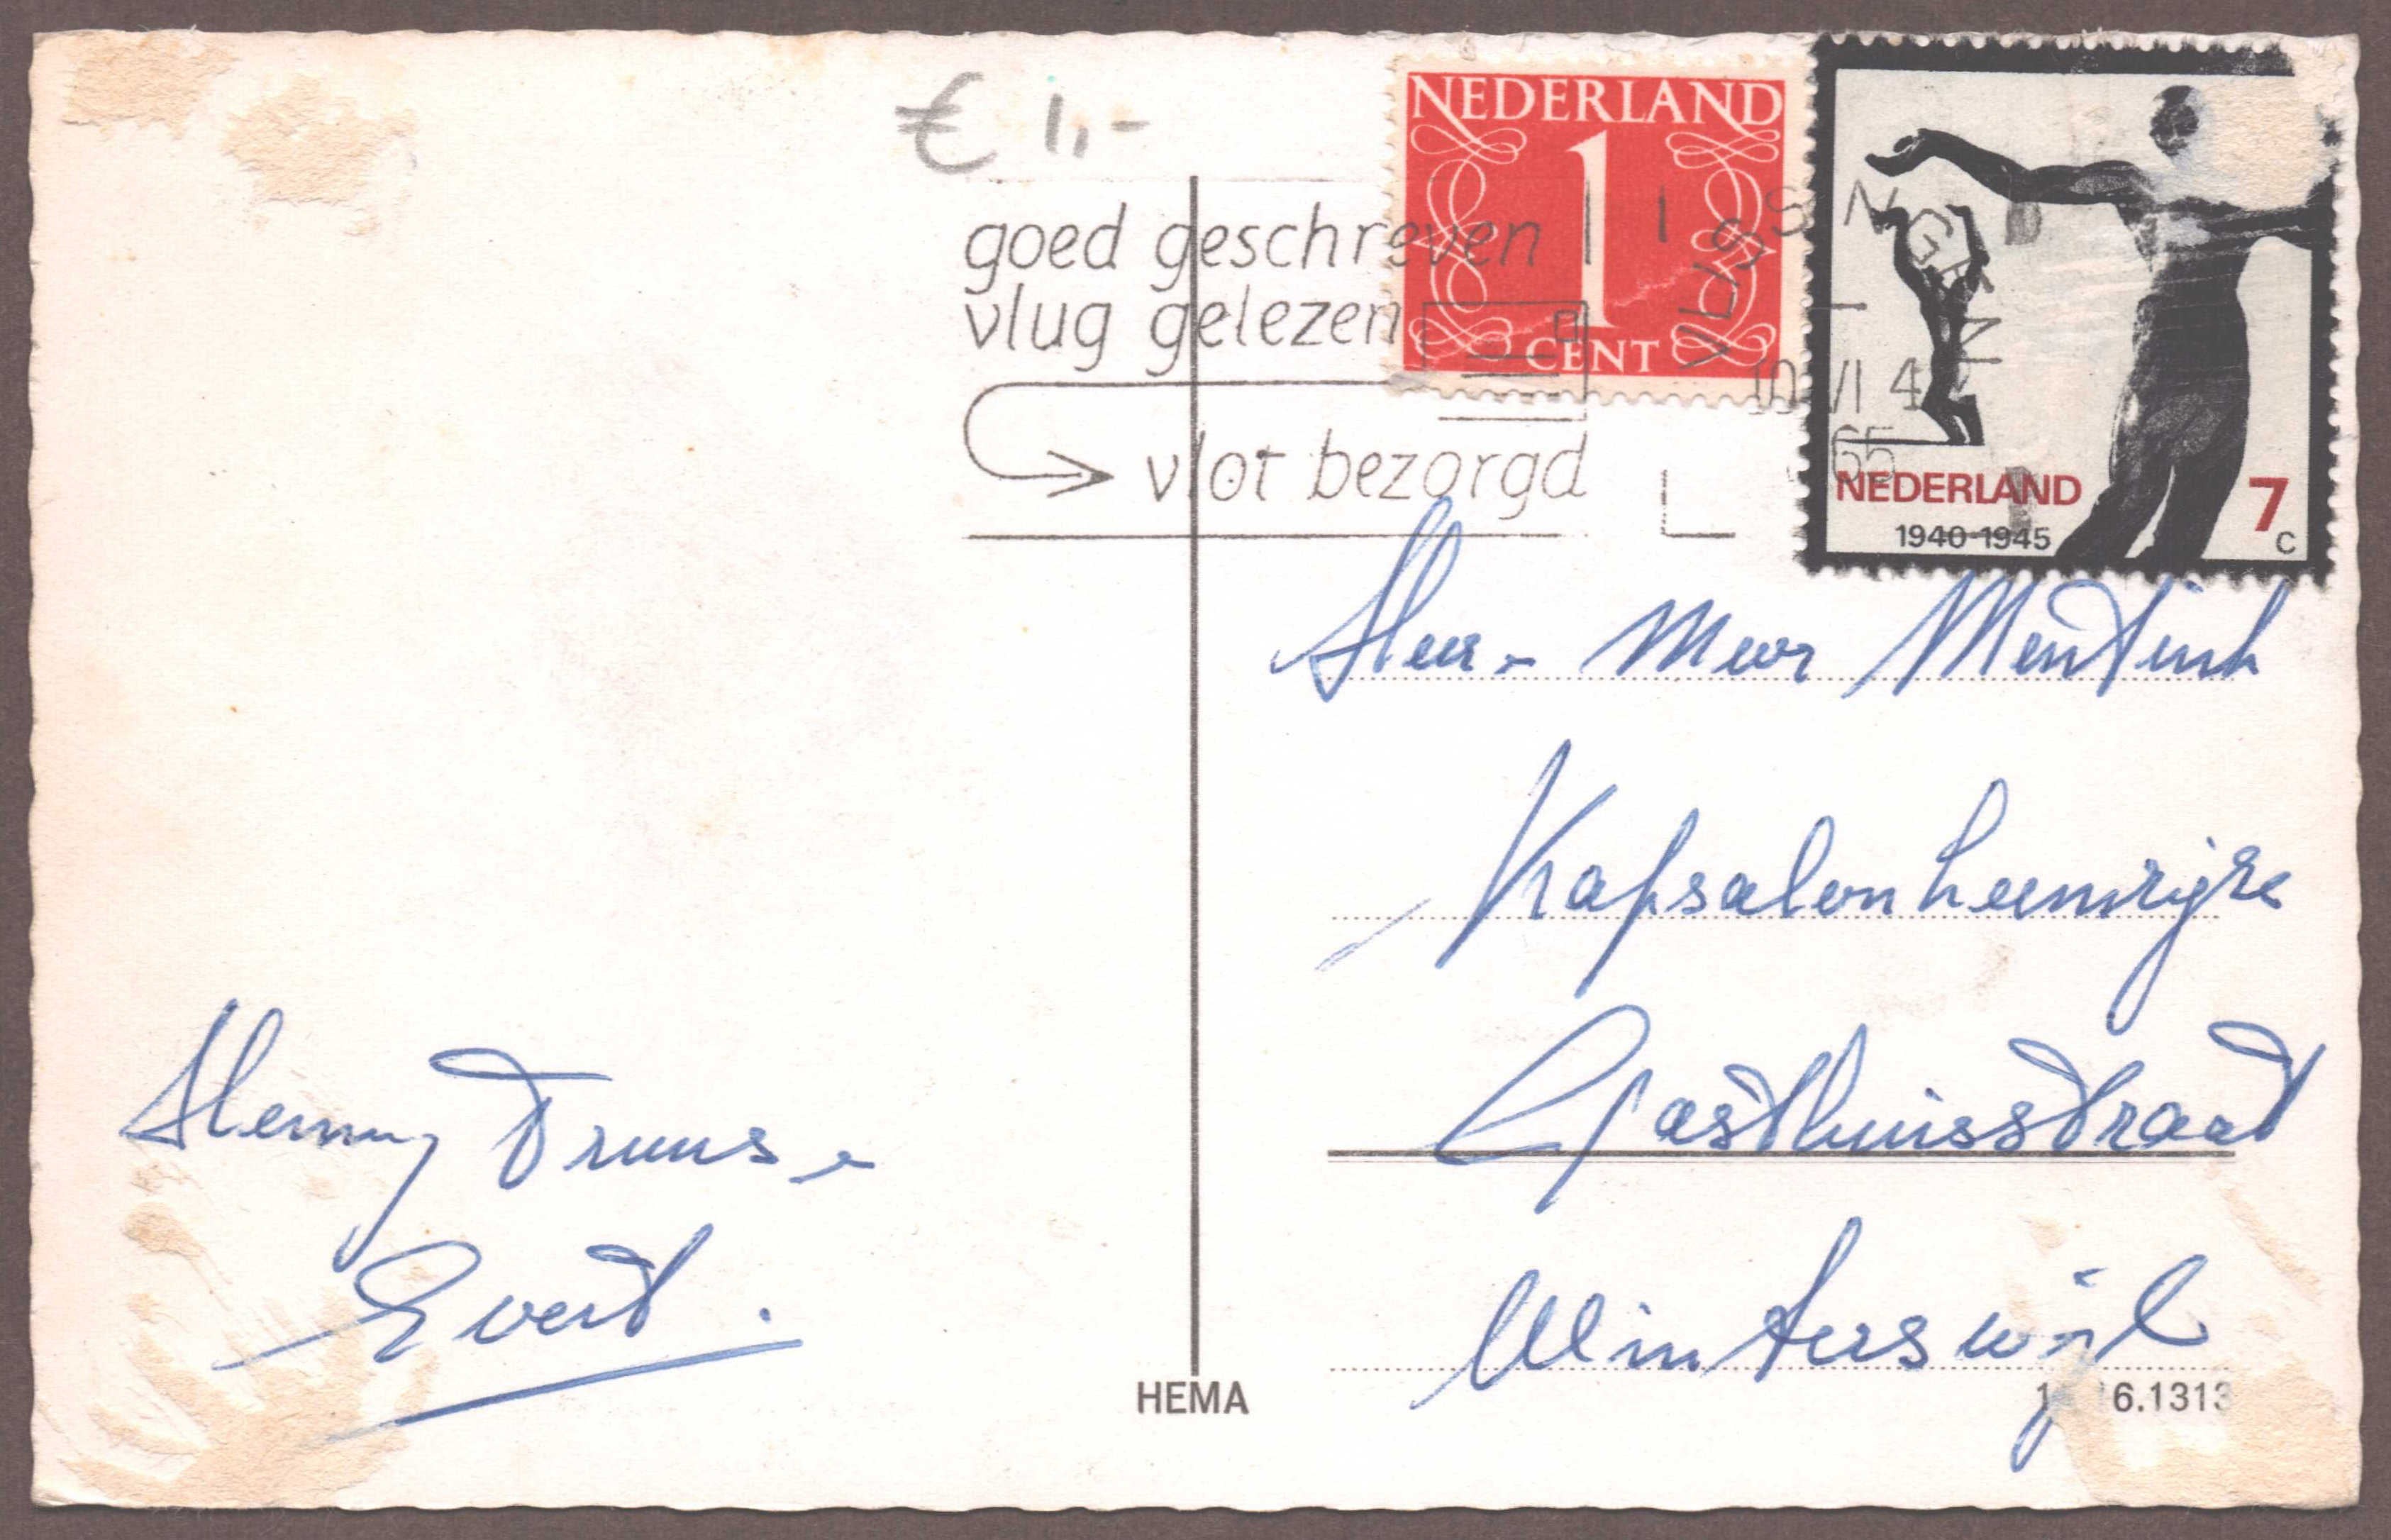 € 1,-
NEDERLAND
1
CENT
goed geschreven
vlug gelezen
vlot bezorgd
VLISSINGEN
10 VI 4
65
NEDERLAND
1940-1945
7
c
Heer - Mevr Mentink
Kapsalon
Gasthuisstraat
Winterswijk
Henny Truus -
Evert.
HEMA
6.1313